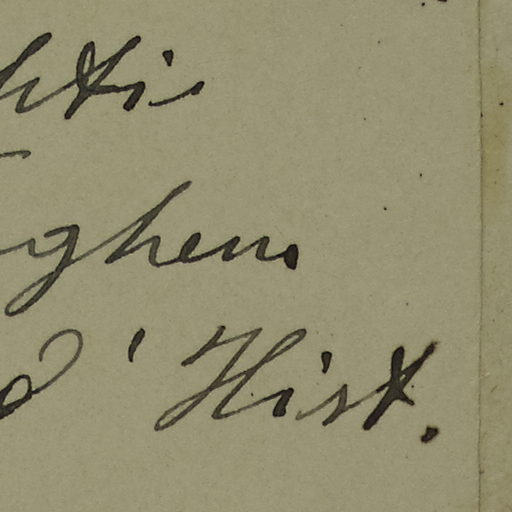 htis
ghem
d' Hist.